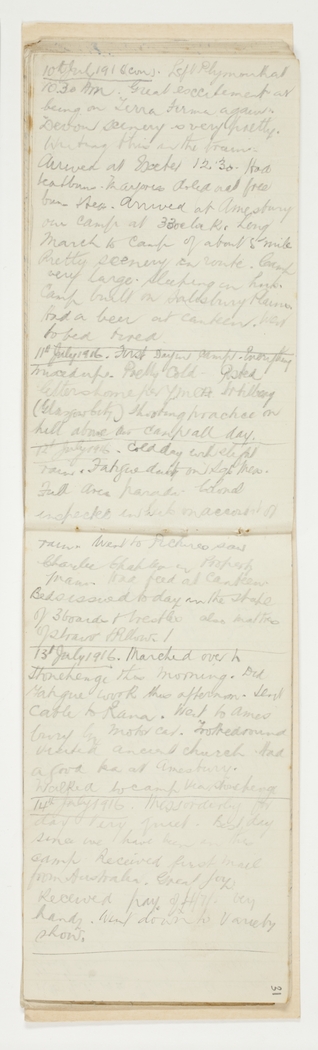 10th July 1916 (con). Left Plymouth at
10.30 AM. Great excitement at
being on Terra Firma again.
Devon scenery is very pretty.
Writing this in the train.
Arrived at Exeter 12.30. Had
tea & buns. Mayoress doled out free
bun & tea. Arrived at Amesbury
our camp at 3 30 o'clock. Long
March to camp of about 5 mile
Pretty scenery en route. Camp
very large. Sleeping in huts.
Camp built on Salisbury Plains.
Had a beer at canteen. Went
to bed tired
11th July 1916. First day in camp. Everything
mixed up. Pretty cold. Posted
letters home per YMCA
(Glasgow boy) Shooting practice on
hill above our camp all day.
12th July 1916. Cold day with slight
rain. Fatigue duty
Full dress parade. Colonel
inspected us late on account of
rain. Went to Pictures saw
Charlie Chaplin in Property
Man. Had feed at Canteen.
Beds issued today in the shape
of 3 boards & trestles also mattress
of straw & Pillow!
13th July 1916. Marched over to
Stonehenge this morning. Did
Fatigue work this afternoon. Sent
cable to Rana. Went to Ames
bury by motor car. Looked around
visited ancient church. Had
a good tea at Amesbury.
Walked to camp
14th July 1916. Mess orderly for
day. Very quiet.
since we have been in the
camp Received first mail
from Australia. Great joy.
Received pay
hands. Went down to Variety
show.
31